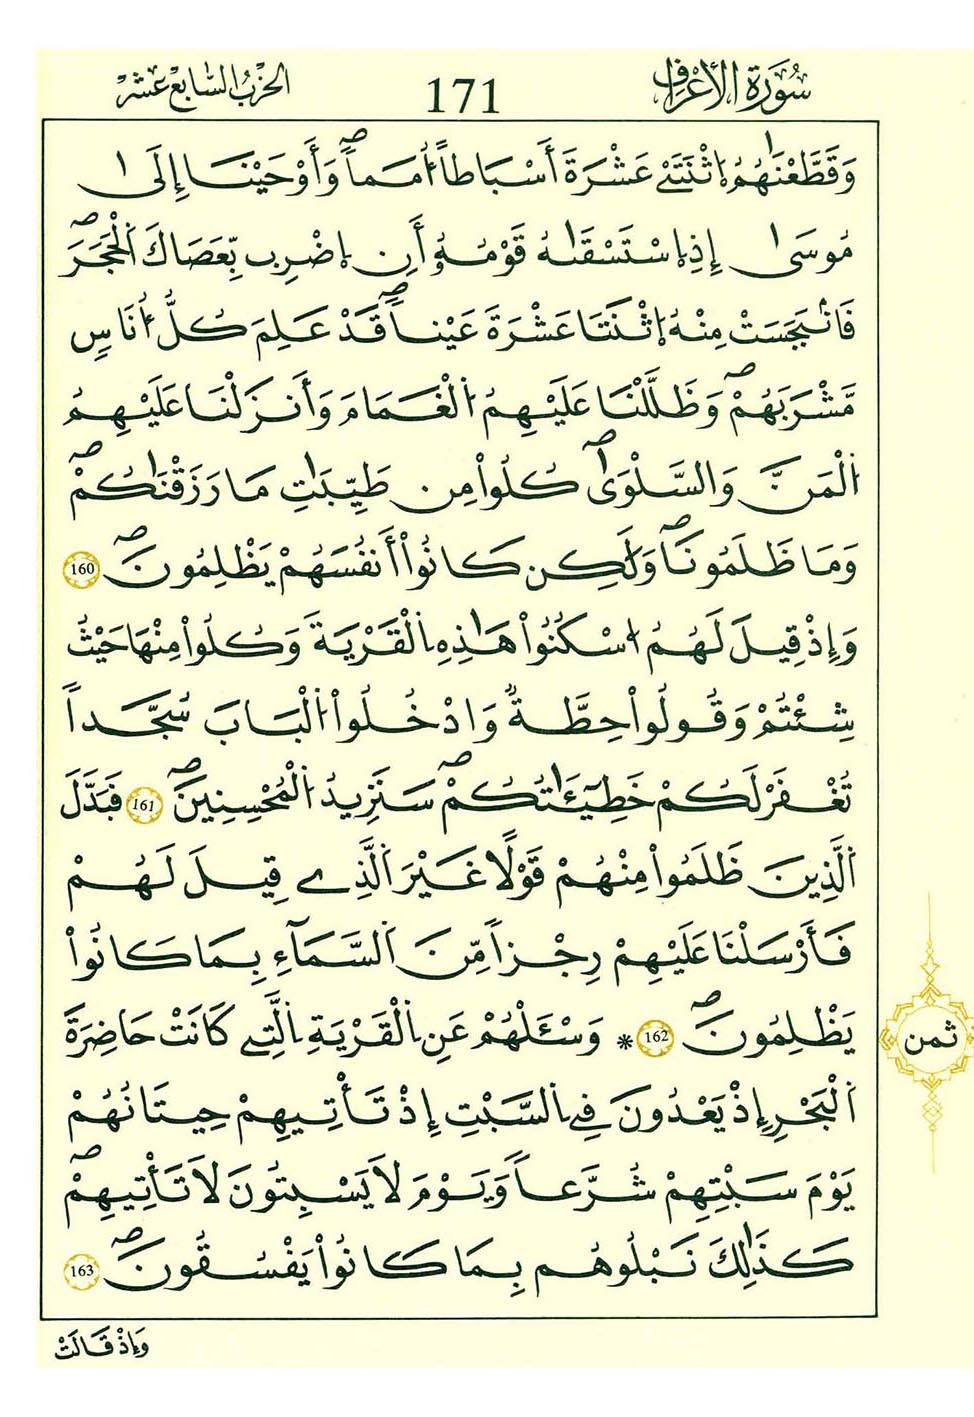 سُورَةُ الأَعْرَافِ
171
الحِزْبُ السَّابِعَ عَشَرَ
وَقَطَّعْنَٰهُمُ اُ۪ثْنَتَےْ عَشْرَةَ أَسْبَاطاً أُمَماًۖ وَأَوْحَيْنَا إِلَىٰ
مُوسَىٰ إِذِ اِ۪سْتَسْقَىٰهُ قَوْمُهُۥٓ أَنِ اِ۪ضْرِب بِّعَصَاكَ اَ۬لْحَجَرَۖ
فَانۢبَجَسَتْ مِنْهُ اُ۪ثْنَتَا عَشْرَةَ عَيْناًۖ قَدْ عَلِمَ كُلُّ أُنَاسٖ
مَّشْرَبَهُمْۖ وَظَلَّلْنَا عَلَيْهِمُ اُ۬لْغَمَامَ وَأَنزَلْنَا عَلَيْهِمُ
اُ۬لْمَنَّ وَالسَّلْوَىٰۖ كُلُواْ مِن طَيِّبَٰتِ مَا رَزَقْنَٰكُمْۖ
وَمَا ظَلَمُونَاۖ وَلَٰكِن كَانُوٓاْ أَنفُسَهُمْ يَظْلِمُونَۖ 160
وَإِذْ قِيلَ لَهُمُ اُ۟سْكُنُواْ هَٰذِهِ اِ۬لْقَرْيَةَ وَكُلُواْ مِنْهَا حَيْثُ
شِئْتُمْ وَقُولُواْ حِطَّةٞ وَادْخُلُواْ اُ۬لْبَابَ سُجَّداً
تُغْفَرْ لَكُمْ خَطِيٓـَٰٔتُكُمْۖ سَنَزِيدُ اُ۬لْمُحْسِنِينَۖ 161 فَبَدَّلَ
اَ۬لذِينَ ظَلَمُواْ مِنْهُمْ قَوْلًا غَيْرَ اَ۬لذِے قِيلَ لَهُمْ
فَأَرْسَلْنَا عَلَيْهِمْ رِجْزاً مِّنَ اَ۬لسَّمَآءِ بِمَا كَانُواْ
يَظْلِمُونَۖ 162 * وَسْـَٔلْهُمْ عَنِ اِ۬لْقَرْيَةِ اِ۬لتِے كَانَتْ حَاضِرَةَ
اَ۬لْبَحْرِ إِذْ يَعْدُونَ فِے اِ۬لسَّبْتِ إِذْ تَأْتِيهِمْ حِيتَانُهُمْ
يَوْمَ سَبْتِهِمْ شُرَّعاً وَيَوْمَ لَا يَسْبِتُونَ لَا تَأْتِيهِمْۖ
كَذَٰلِكَ نَبْلُوهُم بِمَا كَانُواْ يَفْسُقُونَۖ 163
ثمن
وَإِذْ قَالَتْ